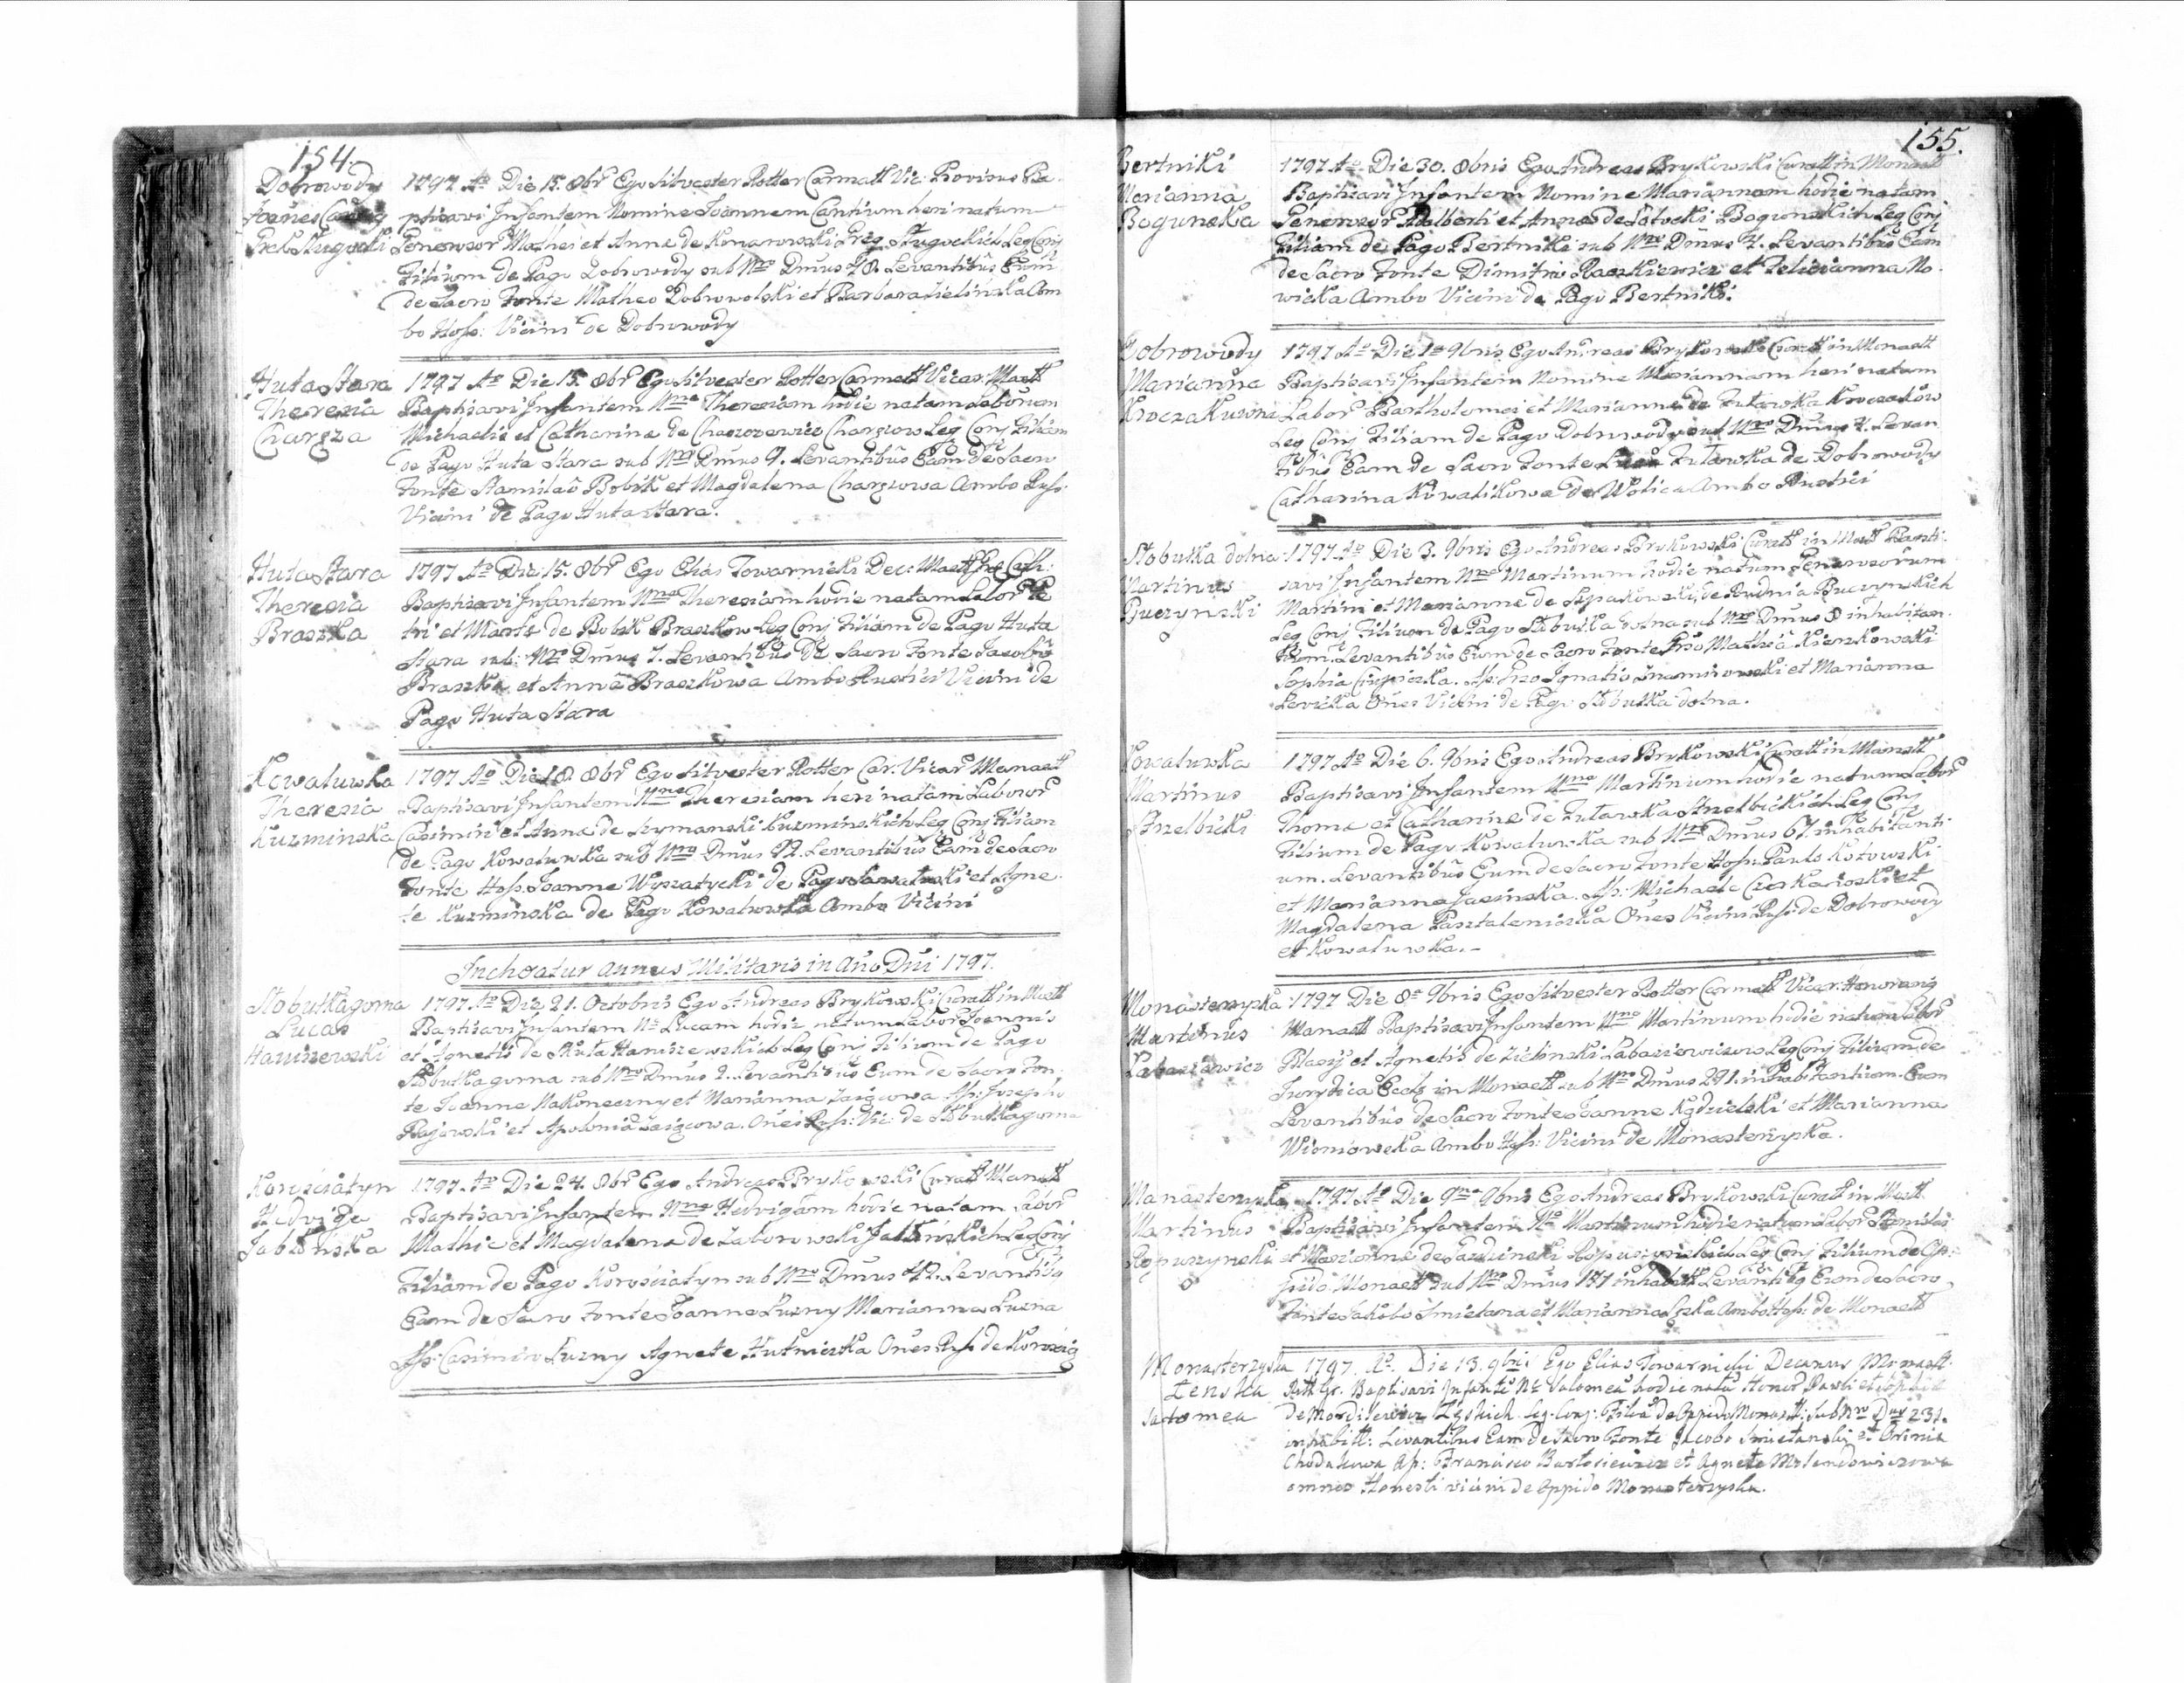 154.
Dobrowody
Joanes
1797 Ao Die 15. 8br Ego Silvester Rotter Carmelt Vic. Provisus Ba
ptisavi Infantem Nomine Joannem Cantium heri natum
Mathei et Anne de Komarowski Leg Conj
Filium de Pago Dobrowody sub Nro Dmus 78. Levantibus Eum
de Sacro Fonte Matheo Dobrowolski et Barbara Zielinska Am
bo Hosp: Vicini de Dobrowody
Huta Stara
Theresia
Chargza
1797 Ao Die 15. 8br Ego Silvester Rotter Carmelt Vicar: Mastt
Baptisavi Infantem Nne Theresiam hodie natam Laborum
Michaelis et Catharine de Leg Conj Filiam
de Pago Huta Stara sub Nro Dmus 9. Levantibus Eam de Sacro
Fonte Stanislao Bobik et Magdalena Chargzowa Ambo Rust:
Vicini de Pago Huta Stara.
Huta Stara
Theresia
Braszka
1797 Ao Die 15. 8br Ego Elias Towarnicki Dec: Mastt
Baptisavi Infantem Nne Theresiam hodie natam Labor Pe
tri et Marte de Bobik Braszkow Leg Conj Filiam de Pago Huta
Stara sub: Nro Dmus 7. Levantibus de Sacro Fonte Jacobo
Braszka et Anna Braszkowa Ambo Rustici Vicini de
Pago Huta Stara
Kowaluwka
Theresia
Kuzminska
1797 Ao Die 18. 8br Ego Silvester Rotter Car. Vicar Manastt
Baptisavi Infantem Nne Theresiam heri natam Laboror
Casimiri et Anna de Szymanski Kuzminskich Leg Conj Filiam
de Pago Kowaluwka sub Nro Dmus 22. Levantibus Eam de Sacro
Fonte Hosp. Joanne Wyszatycki de Pago et Agne
te Kuzminska de Pago Kowaluwka Ambo Vicini
Inchoatur Annus Militaris in Ano Dni 1797.
Slobutka gorna
Lucas
Haniszewski
1797. Ao Die 21. Octobris Ego Andreas Brykowski Curatt in Mastt
Baptisavi Infantem Ne Lucam hodie natum Labor Joannis
et Agnetis de Skuta Haniszewskich Leg Conj Filium de Pago
Slobutka gorna sub Nro Dmus 2. Levantibus Eum de Sacro Fon
te Joanne Nakoneczny et Marianna Zaiącowa Ass: Josepho
Rajowski et Apolonia Zaiącowa. Ones Rust: Vic: de Slobutka gorna
Korosciatyn
Hedvige
Jablonska
1797. Ao Die 24. 8br Ego Andreas Brykowski Curatt Manastt
Baptisavi Infantem Nne Hedvigam hodie natam Labor
Mathie et Magdalena de Zaborowski Jablonskich Leg Conj
Filiam de Pago Korosciatyn sub Nro Dmus 42. Levantibq
Eam de Sacro Fonte Joanne Luzny Marianna Luzna
Ass: Casimiro Luzny Agnete Hutniczka Ones Rust de Korosciaty
155.
Bertniki
Marianna
Bogunska
1797 Ao Die 30. 8bris Ego Andreas Brykowski Curatt in Monastt
Baptisavi Infantem Nomine Mariannam hodie natam
Penerosor Adalberti et Anna de Bogunskich Leg Conj
Filiam de Pago Bertniki sub Nro Dmus 4. Levantibus Eam
de Sacro Fonte Dimitrio Raszkiewicz et Felicianna No
wicka Ambo Vicini de Pago Bertniki.
Dobrowody
Marianna
Kroczakuwna
1797 Ao Die 1a 9bris Ego Andreas Brykowski Curatt in Monastt
Baptisavi Infantem Nomine Mariannam heri natam
Labor Bartholomei et Marianne de Futawka Kroczakow
Leg Conj Filiam de Pago Dobrowody sub Nro Dmus 7. Levan
tibus Eam de Sacro Fonte Futawka de Dobrowody
Catharina Kowalikowa de Wolica Ambo Rustici
Slobutka dolna
Martinus
Buczynski
1797 Ao Die 3. 9bris Ego Andreas Brykowski Curatt in Mastt Bapti
savi Infantem Nne Martinum hodie natum Penerosorum
Martini et Marianne de de Rudnia Buczynskich
Leg Conj Filium de Pago Slobutka dolna sub Nro Dmus 8 inhabitan
tium. Levantibus Eum de Sacro Fonte Mathia Kieszkowski
Sophia Ass: Ignatio et Marianna
Levicka Ones Vicini de Pago Slobutka dolna.
Kowaluwka
Martinus
Strzelbicki
1797 Ao Die 6. 9bris Ego Andreas Brykowski Curatt in Manastt
Baptisavi Infantem Nne Martinum hodie natum Labor
Thome et Catharine de Futawka Strzelbickich Leg Conj
Filium de Pago Kowaluwka sub Nro Dmus 67. inhabitanti
um. Levantibus Eum de Sacro Fonte Hosp: Paulo Kozowski
et Marianna Jasinska. Ass: Michaele et
Magdalena Ones Vicini Rust: de Dobrowody
et Kowaluwka.
Monasterzyska
Martinus
1797 Die 8a 9bris Ego Silvester Rotter Carmelt Vicar.
Manastt Baptisavi Infantem Nne Martinum hodie natum Labor
Blasij et Agnetis de Zielinski Leg Conj Filium de
Jurydica Eccls in Monastt sub Nro Dmus 291. inhabitantium. Eum
Levantibus de Sacro Fonte Joanne Kądzielski et Marianna
Wisniowska Ambo Hosp: Vicini de Monasterzyska.
Manasterzyska
Martinus
Ropuszynski
1797 Ao Die 9na 9bris Ego Andreas Brykowski Curatt in Mastt
Baptisavi Infantem Ne Martinum hodie natum Labor Stanislai
et Marianne de Ropuszynskich Leg Conj Filium de Op
pido Monastt sub Nro Dmus 157 inhabitt Levantibq Eum de Sacro
Fonte Jakobo Smietana et Marianna Ambo Hosp: de Monastt
Monasterzyska
Lenska
Salomea
1797. Ao. Die 13. 9bris Ego Elias Towarnicki Decanus Monastt.
Baptisavi Infante Ne Salomea hodie nata Honor Pauli et Sophia
de Mordilewicz Leg: Conj: Filia de Oppido Monastt: sub Nro Dus 231.
inhabitt: Levantibus Eam de Sacro Fonte Jacobo Smietanski et
Chodakowa Ap: Francisco Bartosiewicz et Agnete
omnes Honesti vicini de Oppido Monasterzyska.